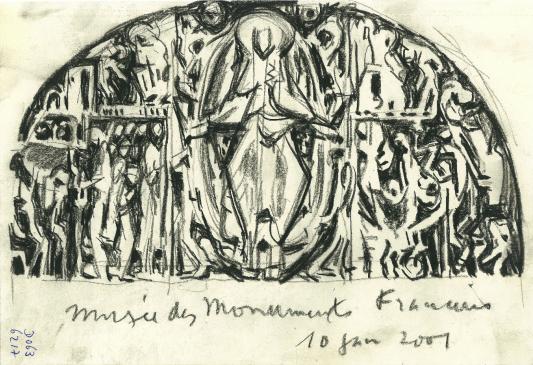 musée des Monuments Francais
10 jan 2001
D063
6217